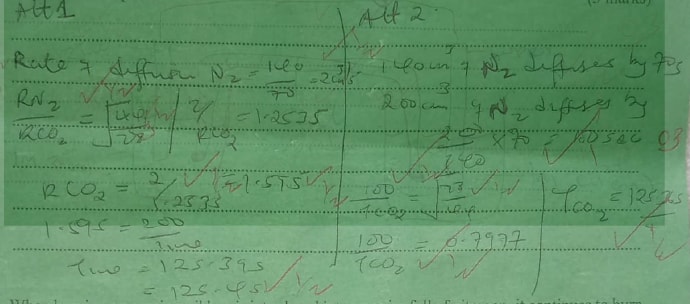 Att 1
Rate of diffusion N₂ = 140/70 = 2cm³/s
RN₂/RCO₂ = √44/28 | 2/RCO₂ = 1.2535
RCO₂ = 2/1.2535 = 1.595
1.595 = 200/Time
Time = 125.39s
= 125.4s
Att 2
140cm³ of N₂ diffuses by 70s
200cm³ of N₂ diffuses by
200/140 × 70 = 100 sec
03
100/TCO₂ = √28/44 | TCO₂ = 125.
100/TCO₂ = 0.7977